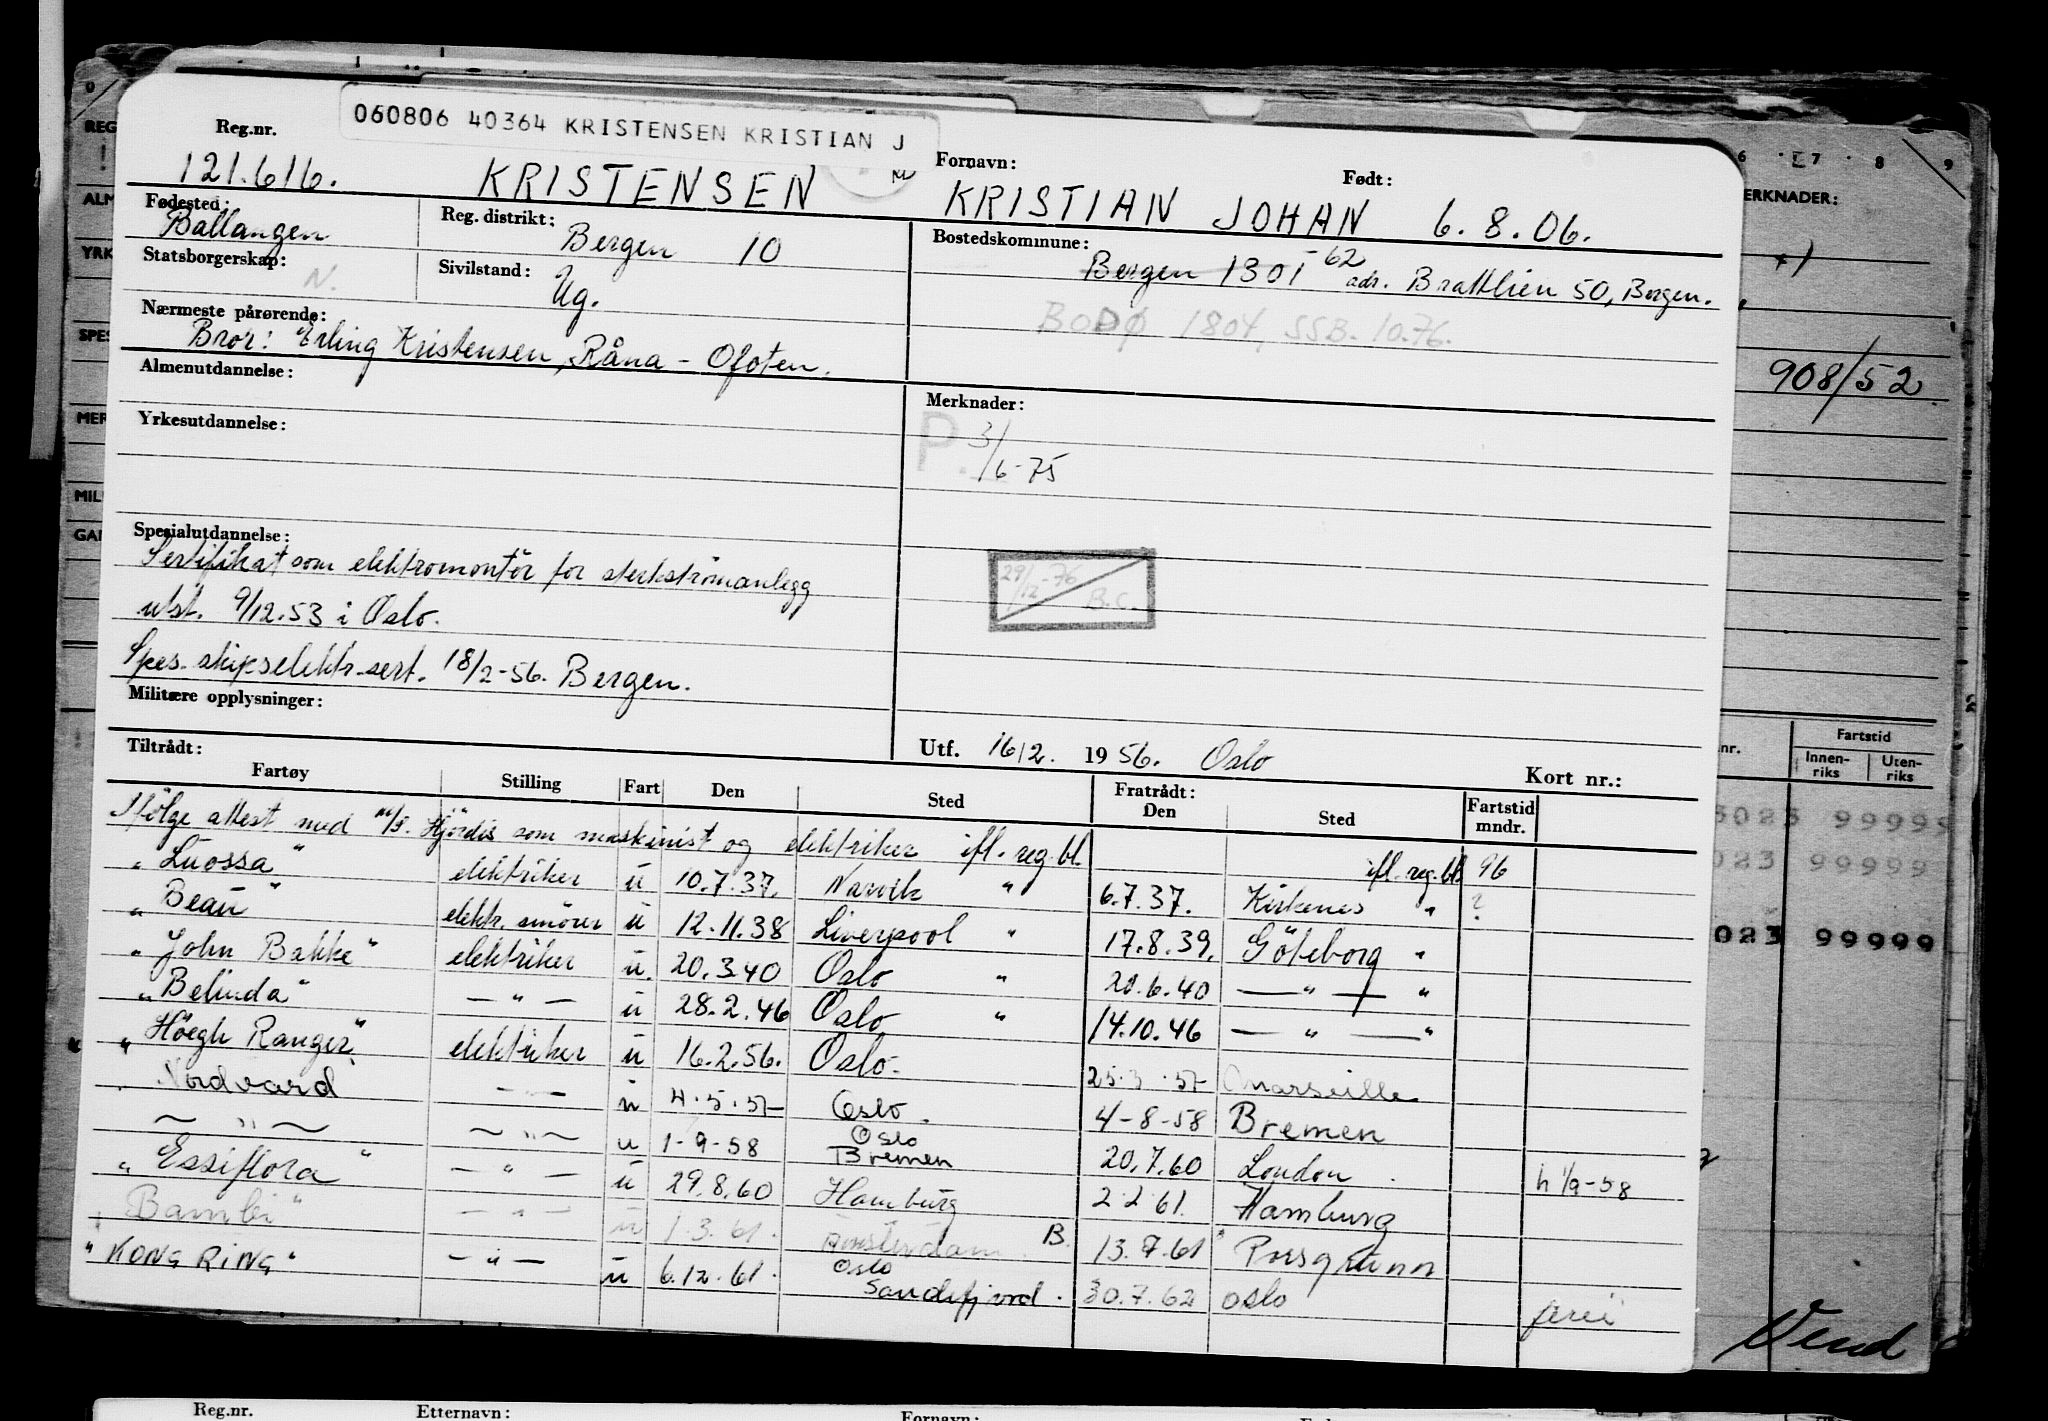 060806 40364 KRISTENSEN KRISTIAN J
Reg.nr. Fornavn: Født:
121.616. KRISTENSEN KRISTIAN JOHAN 6.8.06.
Fødested: Reg. distrikt: Bostedskommune:
Ballangen Bergen 10 Bergen 1301 62 adr. Brattlien 50, Bergen.
Statsborgerskap: Sivilstand:
N. Ug. BODØ 1804, SSB. 10.76.
Nærmeste pårørende:
Bror: Erling Kristensen, Råna - Ofoten.
Almenutdannelse: Merknader:
P. 3/6-75
Yrkesutdannelse:
Spesialutdannelse:
Sertifikat som elektromontör for sterkströmanlegg
utst. 9/12.53 i Oslo.
29/12-76 B.C.
Spes. skipselektr.sert. 18/2-56. Bergen.
Militære opplysninger:
Utf. 16/2. 1956. Oslo Kort nr.:
Tiltrådt: Fratrådt:
Fartøy Stilling Fart Den Sted Den Sted Fartstid mndr.
Ifölge attest med M/S. Hjördis som maskinist og elektriker ifl. reg.bl. ifl. reg.bl. 96
"Luossa" elektriker u 10.7.37. Narvik " 6.7.37. Kirkenes " ?
"Beau" elektr. smörer u 12.11.38 Liverpool " 17.8.39. Göteborg "
"John Bakke" elektriker u. 20.3.40 Oslo " 20.6.40 — " — "
"Belinda" — " — u 28.2.46 Oslo " 14.10.46 — " — "
"Höegh Ranger" elektriker u 16.2.56. Oslo. 25.3.57 Marseille
Nordvard — " — u 4.5.57 Oslo. 4-8-58 Bremen
~ " ~ ~ " ~ u 1-9-58 Oslo Bremen 20.7.60 London. h 1/9-58
"Essiflora" — " — u 29.8.60 Hamburg 2.2.61. Hamburg
"Bambi" — " — u 1.3.61. Amsterdam. B. 13.7.61 Porsgrunn
"KONG RING" — " — u 6.12.61. Oslo Sandefjord. 30.7.62 Oslo ferie
6 7 8 9
ERKNADER:
908/52.
REG
ALM
YRK
SPES
MER
MIL
GA
nr. Fartstid
Innen-riks Uten-riks
023 99999
023 99999
023 99999
Vend
Reg.nr. Etternavn: Fornavn: